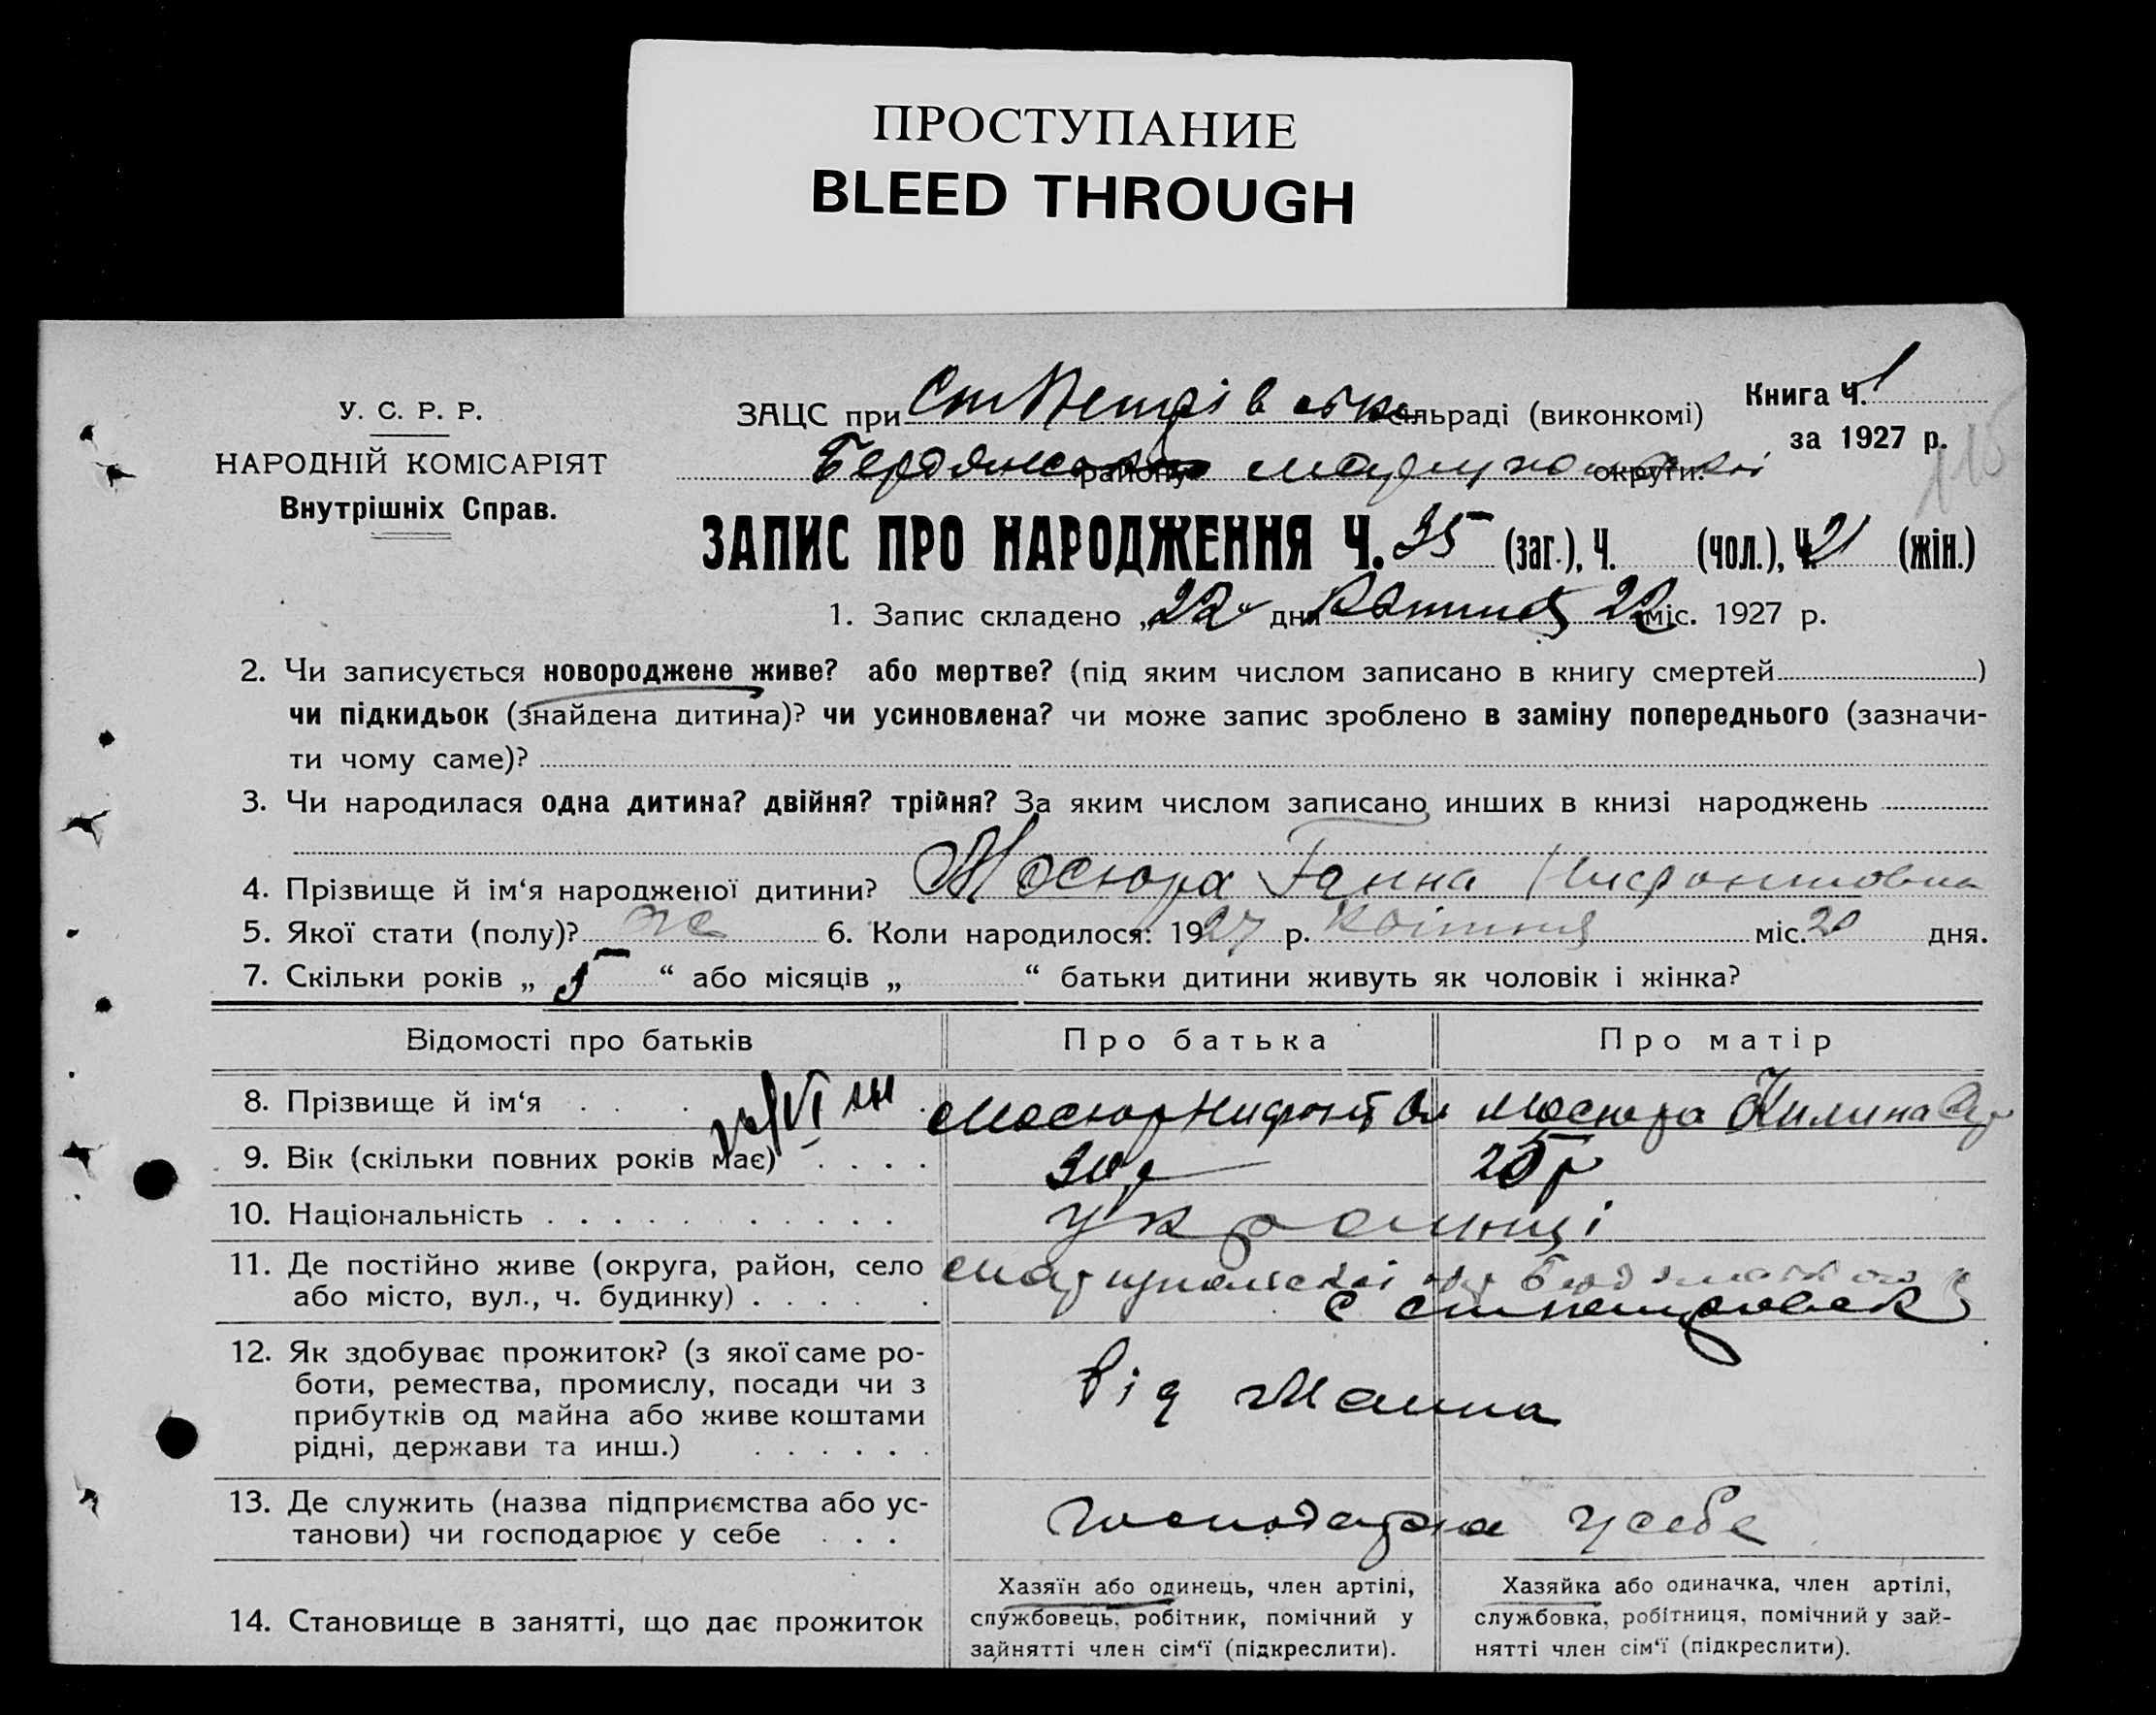 ПРОСТУПАНИЕ
BLEED THROUGH
У. С. Р. Р.
НАРОДНІЙ КОМІСАРІЯТ
Внутрішніх Справ.
ЗАЦС при Ст Петрівськ сільраді (виконкомі)
Книга Ч. 1
за 1927 р.
Бердянсько району Маріупольської округи.
115
ЗАПИС ПРО НАРОДЖЕННЯ Ч. 35 (заг.), Ч. (чол.), Ч. 21 (жін.)
1. Запис складено „22“ дня Квітня 22 міс. 1927 р.
2. Чи записується новороджене живе? або мертве? (під яким числом записано в книгу смертей )
чи підкидьок (знайдена дитина)? чи усиновлена? чи може запис зроблено в заміну попереднього (зазначи-
ти чому саме)?
3. Чи народилася одна дитина? двійня? трійня? За яким числом записано инших в книзі народжень
4. Прізвище й ім‘я народженої дитини? Мосюра Ганна Нифонтовна
5. Якої стати (полу)? же 6. Коли народилося: 1927 р. Квітня міс. 20 дня.
7. Скільки років „ 5 “ або місяців „ “ батьки дитини живуть як чоловік і жінка?
Відомості про батьків Про батька Про матір
8. Прізвище й ім‘я Мосюр Нифонт Мосюра Килина
9. Вік (скільки повних років має) 30 р 25 р
10. Національність українці
11. Де постійно живе (округа, район, село Маріупольскої Бердянського
або місто, вул., ч. будинку) с Стпетровск
12. Як здобуває прожиток? (з якої саме ро-
боти, ремества, промислу, посади чи з від майна
прибутків од майна або живе коштами
рідні, держави та инш.)
13. Де служить (назва підприємства або ус- господарює у себе
танови) чи господарює у себе
14. Становище в занятті, що дає прожиток
Хазяїн або одинець, член артілі,
службовець, робітник, помічний у
зайнятті член сім‘ї (підкреслити).
Хазяйка або одиначка, член артілі,
службовка, робітниця, помічний у зай-
нятті член сім‘ї (підкреслити).